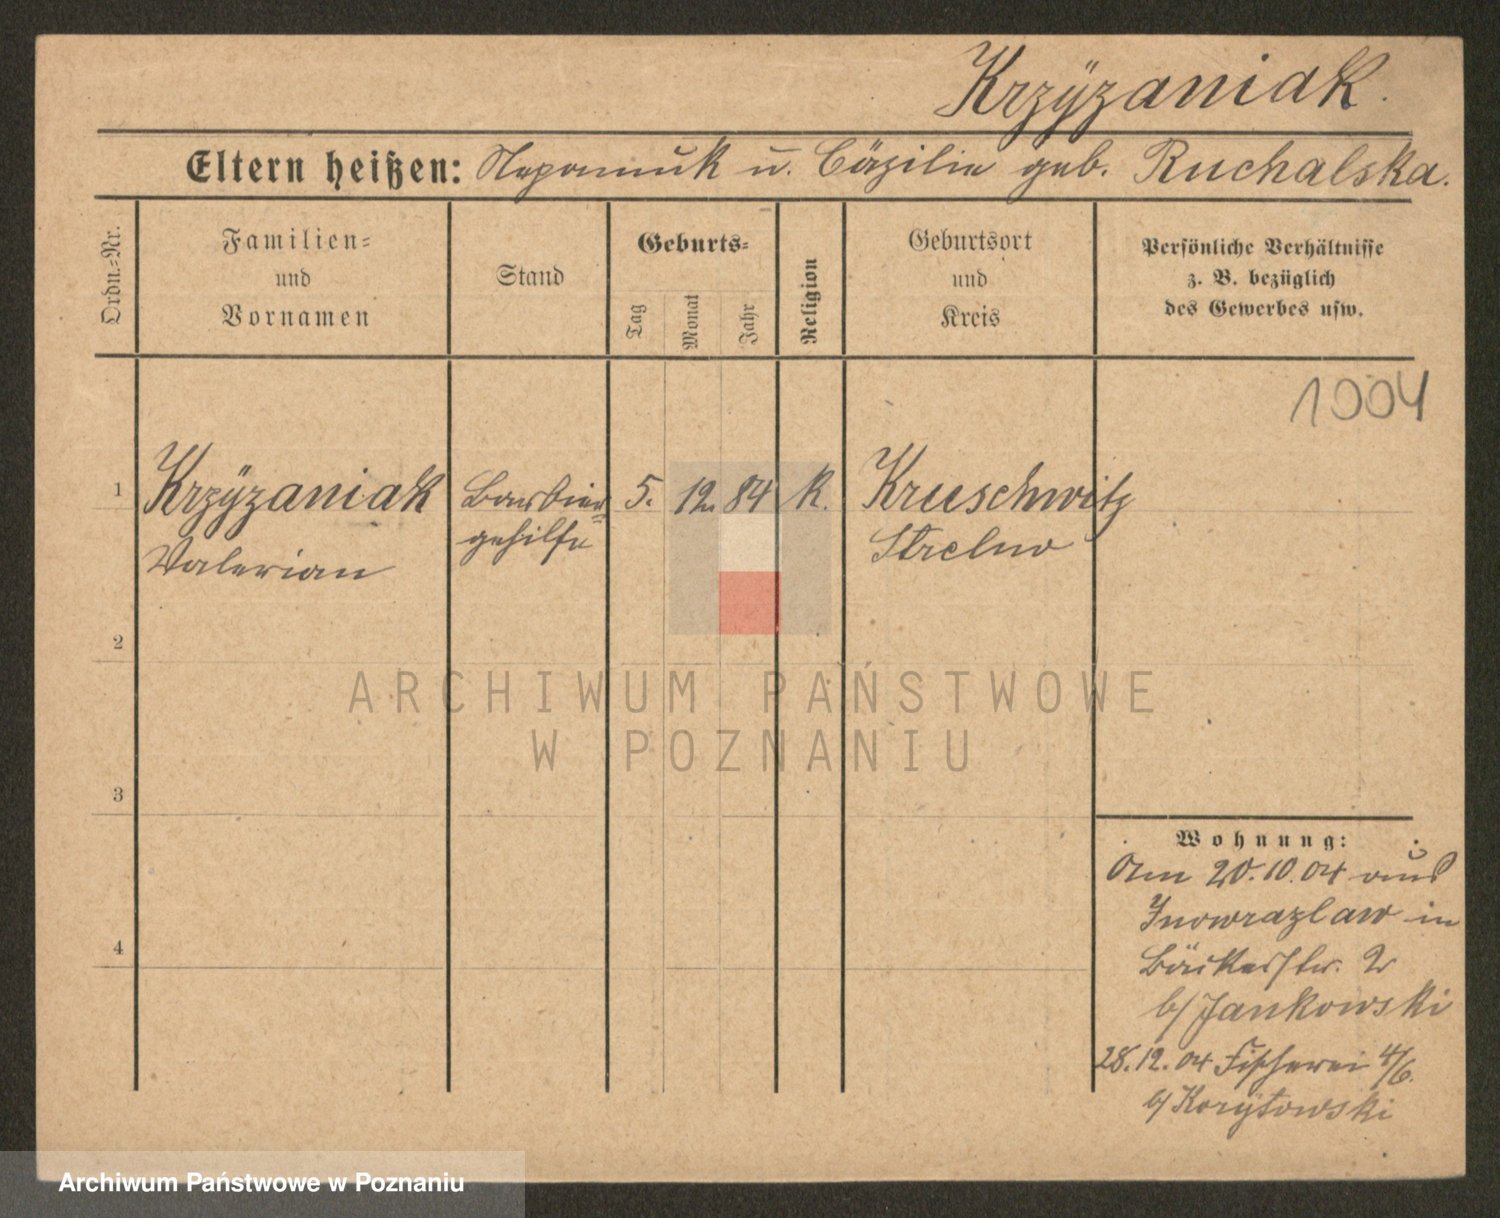 Krzÿzaniak.
Eltern heißen: Nepomuk u. Cäzilie geb. Ruchalska.
Ordn.-Nr.
Familien-
und
Vornamen
Stand
Geburts-
Tag
Monat
Jahr
Religion
Geburtsort
und
Kreis
Persönliche Verhältnisse
z. B. bezüglich
des Gewerbes usw.
1904
1 Krzÿzaniak Barbier 5. 12. 84 K. Kruschwitz
Valerian gehilfe Strelno
2
ARCHIWUM PAŃSTWOWE
W POZNANIU
3
Wohnung:
Am 20.10.04 aus
Inowrazlaw in
Bäckerstr. 2
b/ Jankowski
4
28.12.04 Fischerei 4/6.
b/ Korÿtowski
Archiwum Państwowe w Poznaniu